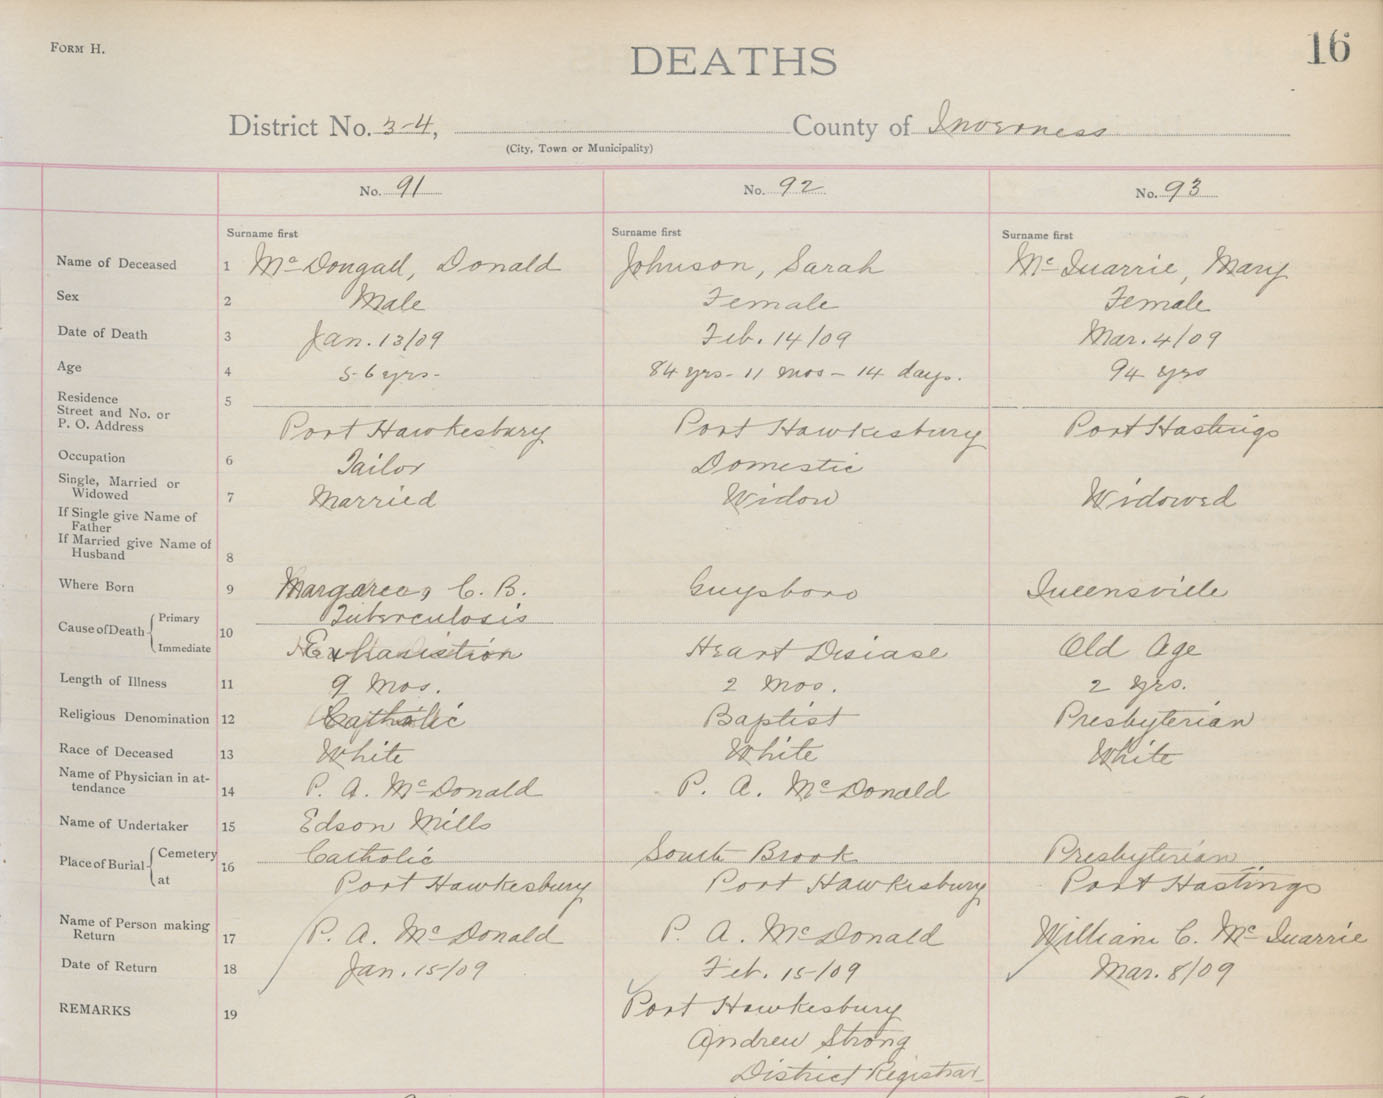 FORM H.
DEATHS
16
District No. 3-4,
County of Inverness
(City, Town or Municipality)
No. 91
No. 92
No. 93
Surname first
Surname first
Surname first
Name of Deceased 1 McDougall, Donald Johnson, Sarah McQuarrie, Mary
Sex 2 Male Female Female
Date of Death 3 Jan. 13/09 Feb. 14/09 Mar. 4/09
Age 4 56 yrs- 84 yrs- 11 mos- 14 days. 94 yrs
Residence 5
Street and No. or
P. O. Address Port Hawkesbury Port Hawkesbury Port Hastings
Occupation 6 Tailor Domestic
Single, Married or
Widowed 7 Married Widow Widowed
If Single give Name of
Father
If Married give Name of
Husband 8
Where Born 9 Margaree, C. B. Guysboro Queensville
Cause of Death Primary 10 Tuberculosis
Immediate Exhaustion Heart Disiase Old Age
Length of Illness 11 9 Mos. 2 Mos. 2 yrs.
Religious Denomination 12 Catholic Baptist Presbyterian
Race of Deceased 13 White White White
Name of Physician in at-
tendance 14 P. A. McDonald P. A. McDonald
Name of Undertaker 15 Edson Mills
Place of Burial Cemetery 16 Catholic South Brook Presbyterian
at Port Hawkesbury Port Hawkesbury Port Hastings
Name of Person making
Return 17 P. A. McDonald P. A. McDonald William C. McQuarrie
Date of Return 18 Jan. 15/09 Feb. 15/09 Mar. 8/09
REMARKS 19 Port Hawkesbury
Andrew Strong
District Registrar